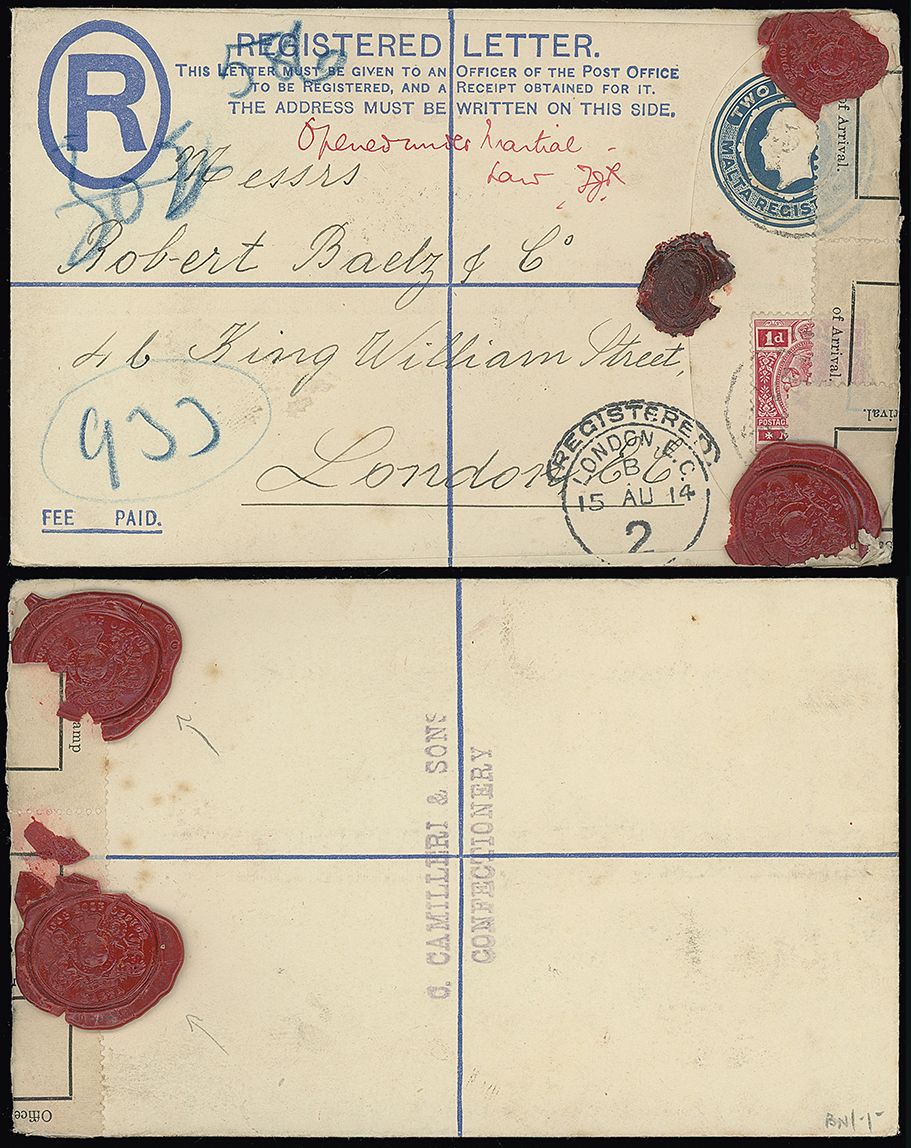 R
REGISTERED LETTER.
THIS LETTER MUST BE GIVEN TO AN OFFICER OF THE POST OFFICE
TO BE REGISTERED, AND A RECEIPT OBTAINED FOR IT.
THE ADDRESS MUST BE WRITTEN ON THIS SIDE.
Opened under Martial
Law
Messrs
Robert Baelz & Co
46 King William Street,
London E C
933
FEE PAID.
TWO
MALTA REGIST
of Arrival.
of Arrival.
rival.
1d
POSTAG
REGISTERED
LONDON. E.C.
B
15 AU 14
2
amp
C. CAMILLERI & SONS
CONFECTIONERY
Office